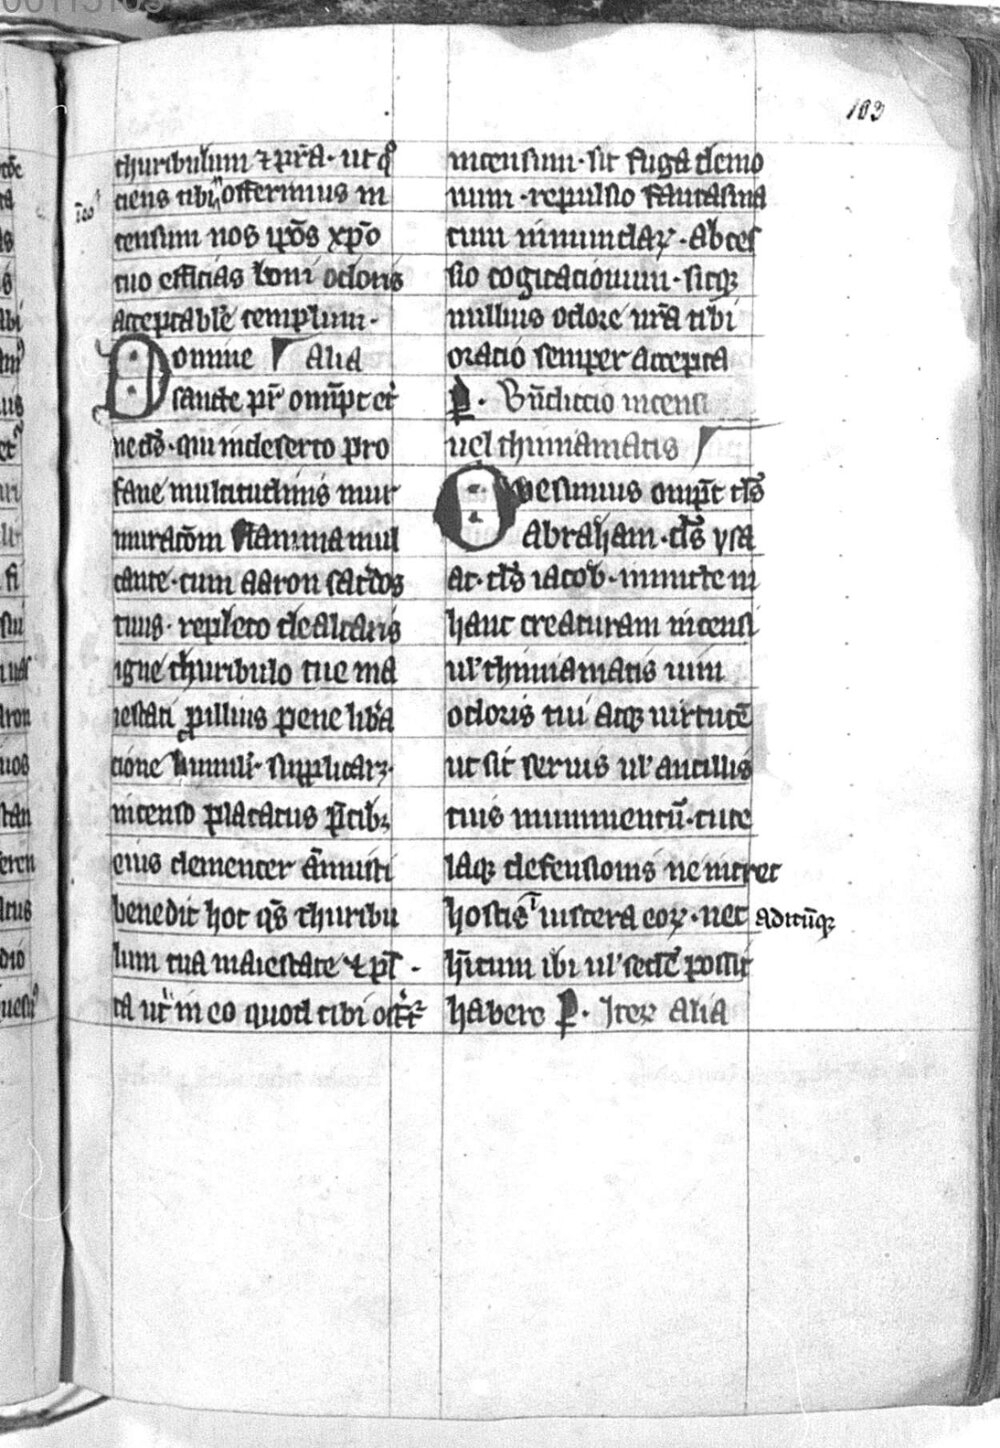 103
thuribulum ⁊ pr̄a· ut qͦ
ciens tibi offerimus in
censum nos ip̄os xp̄o
tuo efficias boni odoris
acceptabile templum·
Domine Alia
sancte pr̄ om̄pc et̉
ne ds̄· qui in deserto pro
fane multitudinis mur
muracōm flamma mul
cante· cum aaron sac̉dos
tuus· repleto de altaris
igne thuribulo tue ma
iestati ꝑ illius pene liba
cione humili· supplicarꝫ·
incenso placatus p̄cibꝫ
eius clementer ānuisti
benedic hoc qs̄ thuribu
lum tua maiestate ⁊ pr̄·
ta ut̉ in eo quod tibi
incensum· sit fuga demo
num· repulsio fantasma
tum inmundaꝝ· abces
sio cogitacionum· sicqꝫ
millius odore nr̄a tibi
oracio semper accepta
ꝑ· Bn̄diccio incensi
uel thimiamatis
Quesumus omp̄t ds̄
abraham· ds̄ ysa
ac· ds̄ iacob· inmitte in
hanc creaturam incensi
ul' thimiamatis uim
odoris tui atqꝫ uirtutē
ut sit seruis ul' ancillis
tuis munimentū· tute
laqꝫ defensionis ne intret
hostis uiscera eoꝝ· nec aditūqꝫ
h̄itum ibi ul' sedē possit
habere ꝑ· Iteꝝ alia